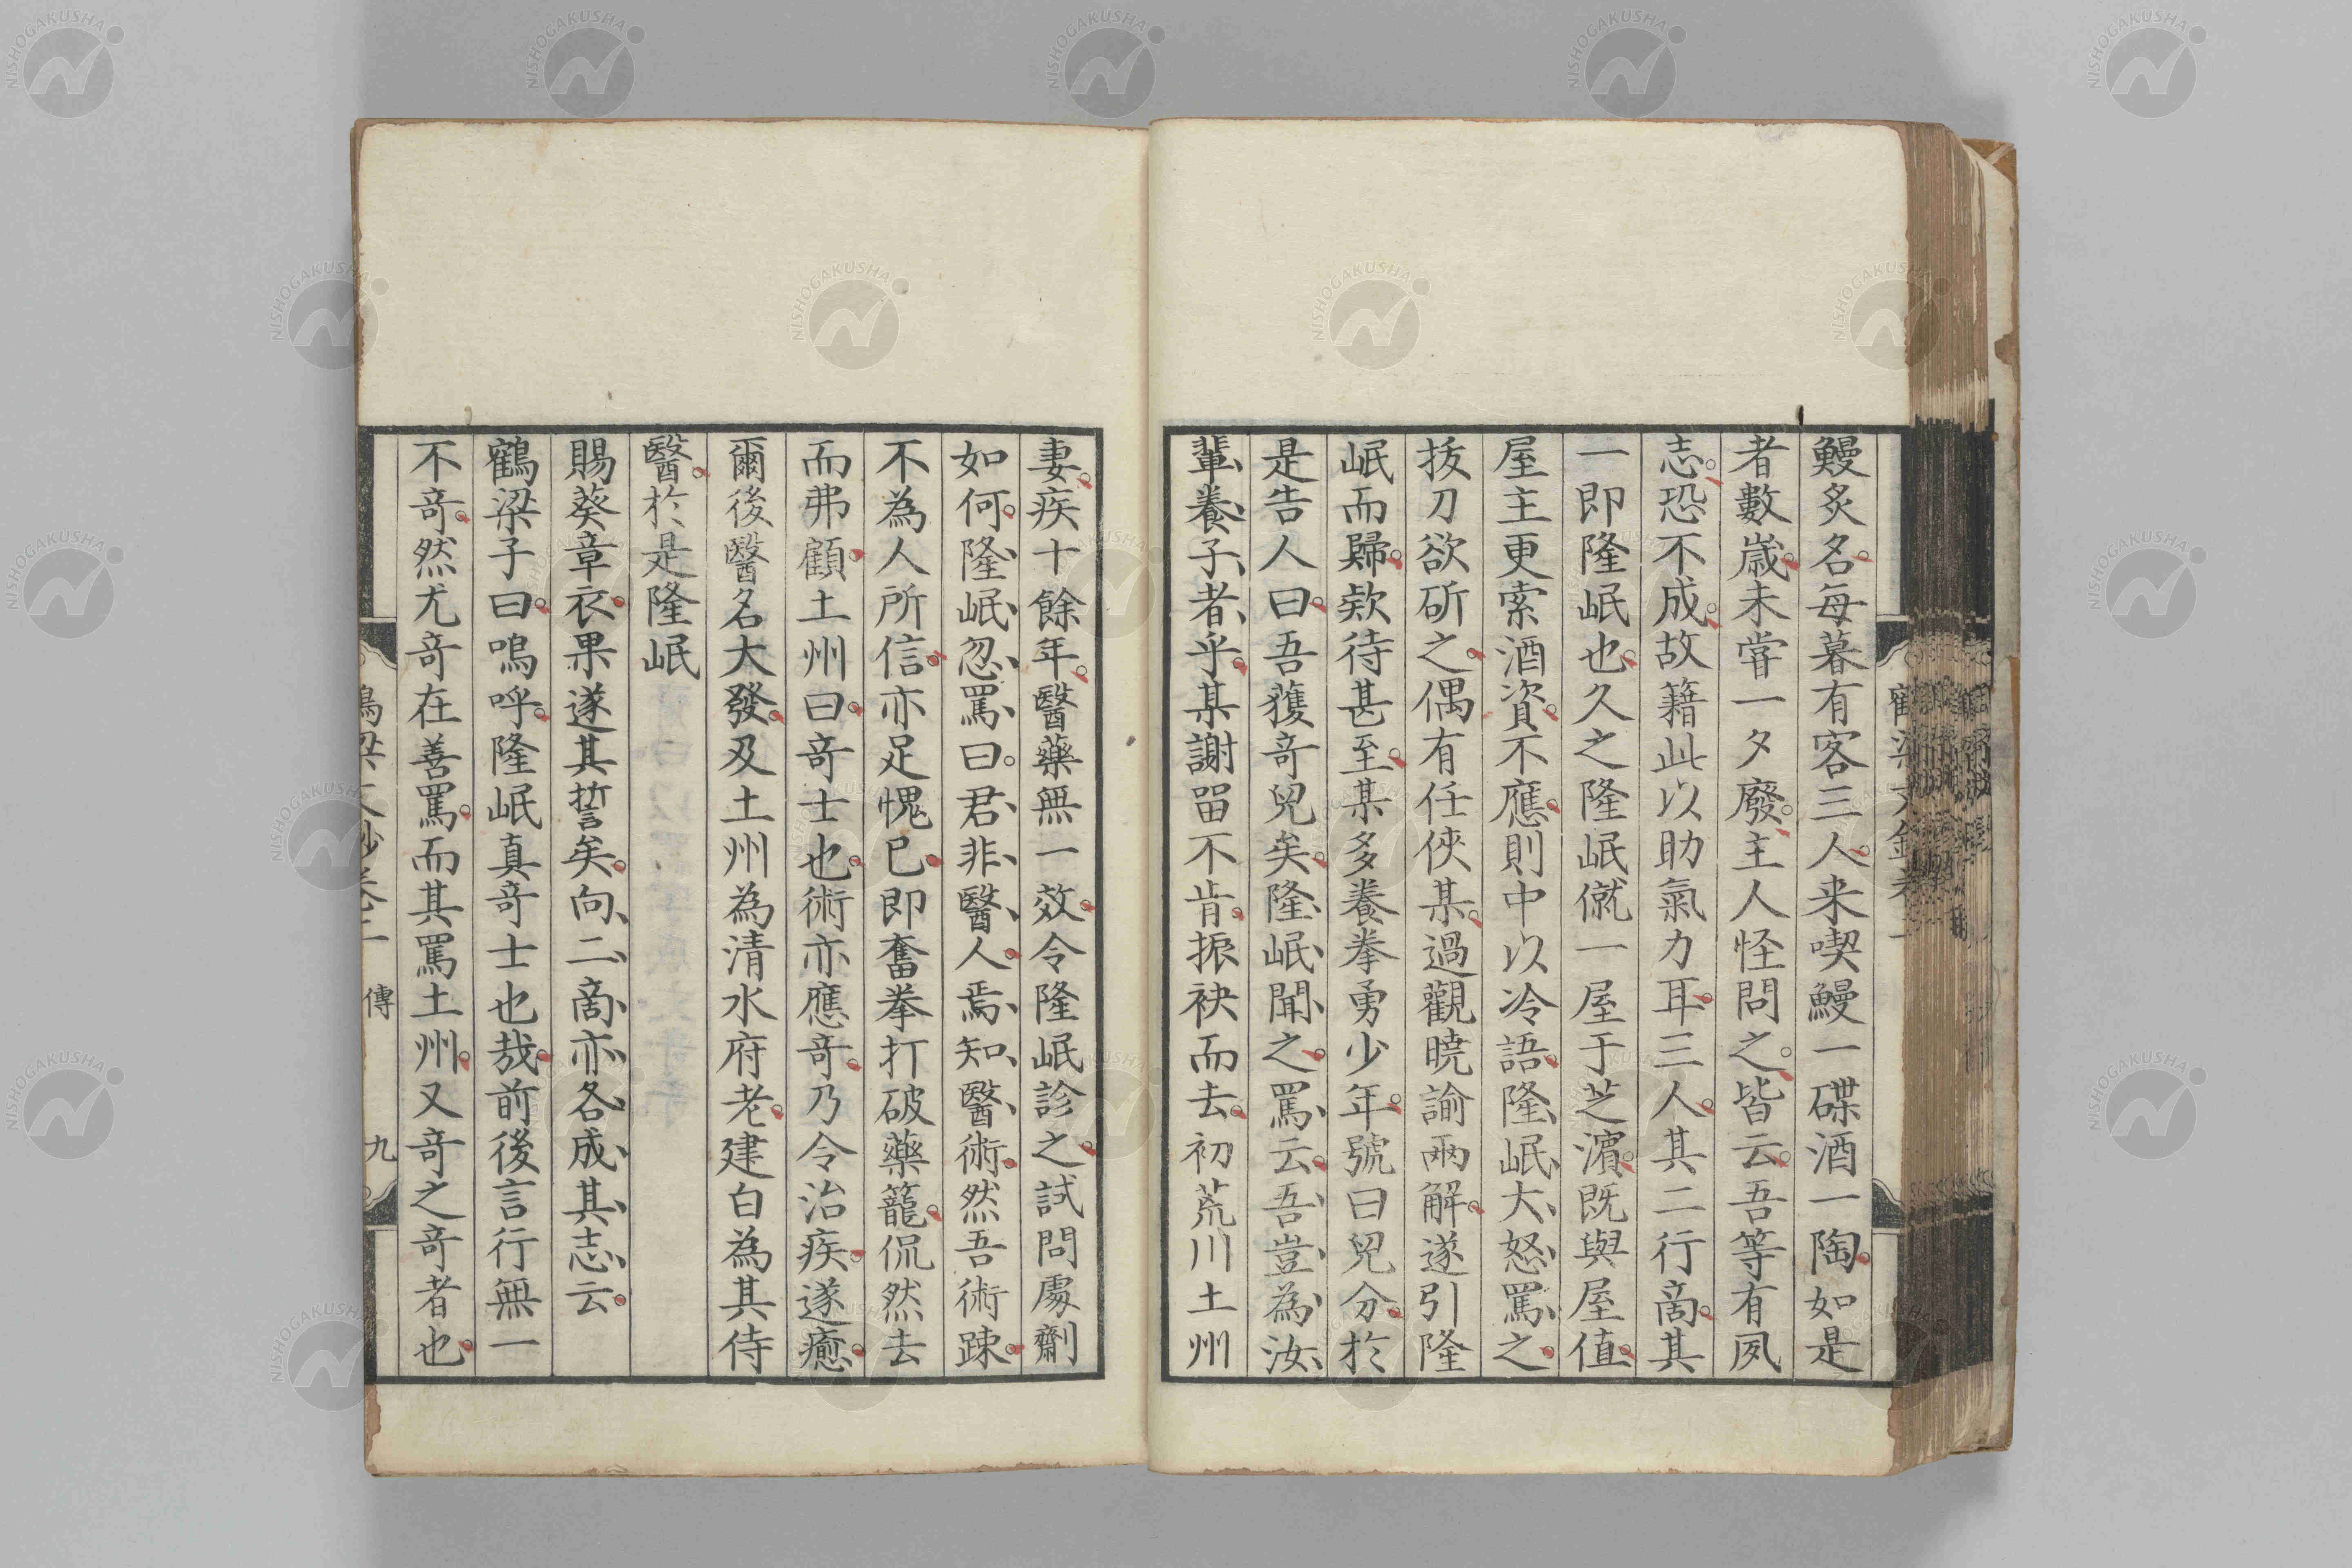 鰻炙名每暮有客三人来喫鰻一碟酒一陶如是
者數歲未嘗一夕廢主人怪問之皆云吾等有夙
志恐不成故籍此以助氣力耳三人其二行啇其
一即隆岷也久之隆岷僦一屋于芝濵既與屋值
屋主更索酒資不應則中以冷語隆岷大怒罵之
拔刀欲斫之偶有任俠某過觀曉諭兩解遂引隆
岷而歸欵待甚至某多養拳勇少年號曰兒分於
是告人曰吾獲奇兒矣隆岷聞之罵云吾豈為汝
輩養子者乎某謝畱不肯振袂而去初荒川土州
妻疾十餘年醫藥無一效令隆岷診之試問處劑
如何隆岷忽罵曰君非醫人焉知醫術然吾術踈
不為人所信亦足愧已即奮拳打破藥籠侃然去
而弗顧土州曰奇士也術亦應奇乃令治疾遂癒
爾後醫名大發及土州為清水府老建白為其侍
醫於是隆岷
賜葵章衣果遂其誓矣向二啇亦各成其志云
鶴梁子曰嗚呼隆岷真奇士也哉前後言行無一
不奇然尤奇在善罵而其罵土州又奇之奇者也
傳
九
NISHOGAKUSHA